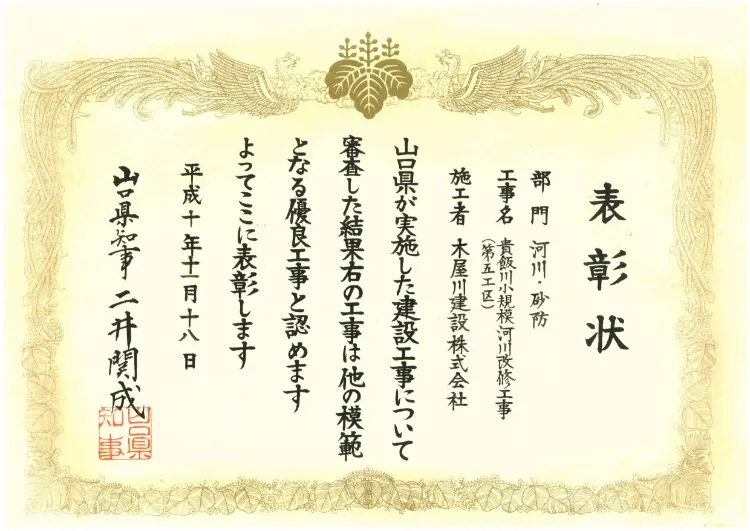 表彰状
部門 河川・砂防
工事名 貴飯川小規模河川改修工事
（第五工区）
施工者 木屋川建設株式会社
山口県が実施した建設工事について
審査した結果右の工事は他の模範
となる優良工事と認めます
よってここに表彰します
平成十年十一月十八日
山口県知事 二井関成
山口県
知事